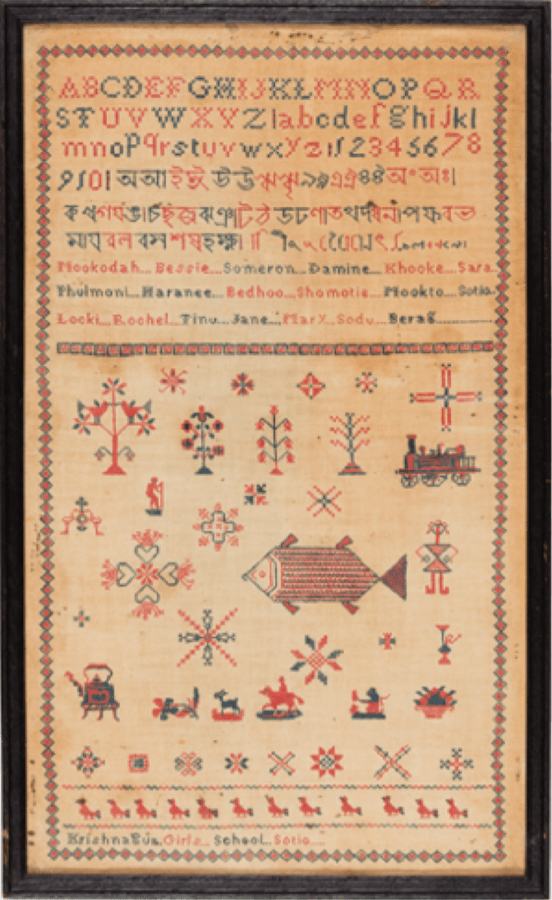 ABCDEFGHIJKLMNOPQR
STUVWXYZ|abcdefghijkl
mnopqrstuvwxyz|12345678
910| অআইঈউঊঋৠঌৡএঐওঔঅংঅঃ|
কখগঘঙ|চছজঝঞ|টঠডঢণতথদধনপফবভ
ময
Mookodah Bessie Someron Damine Khooke Sara
Phulmoni Haranee Bedhoo Shomotie Mookto Sotio
Locki Rochel Tinu Jane Mary Sodu Berag
Girls School Sotio